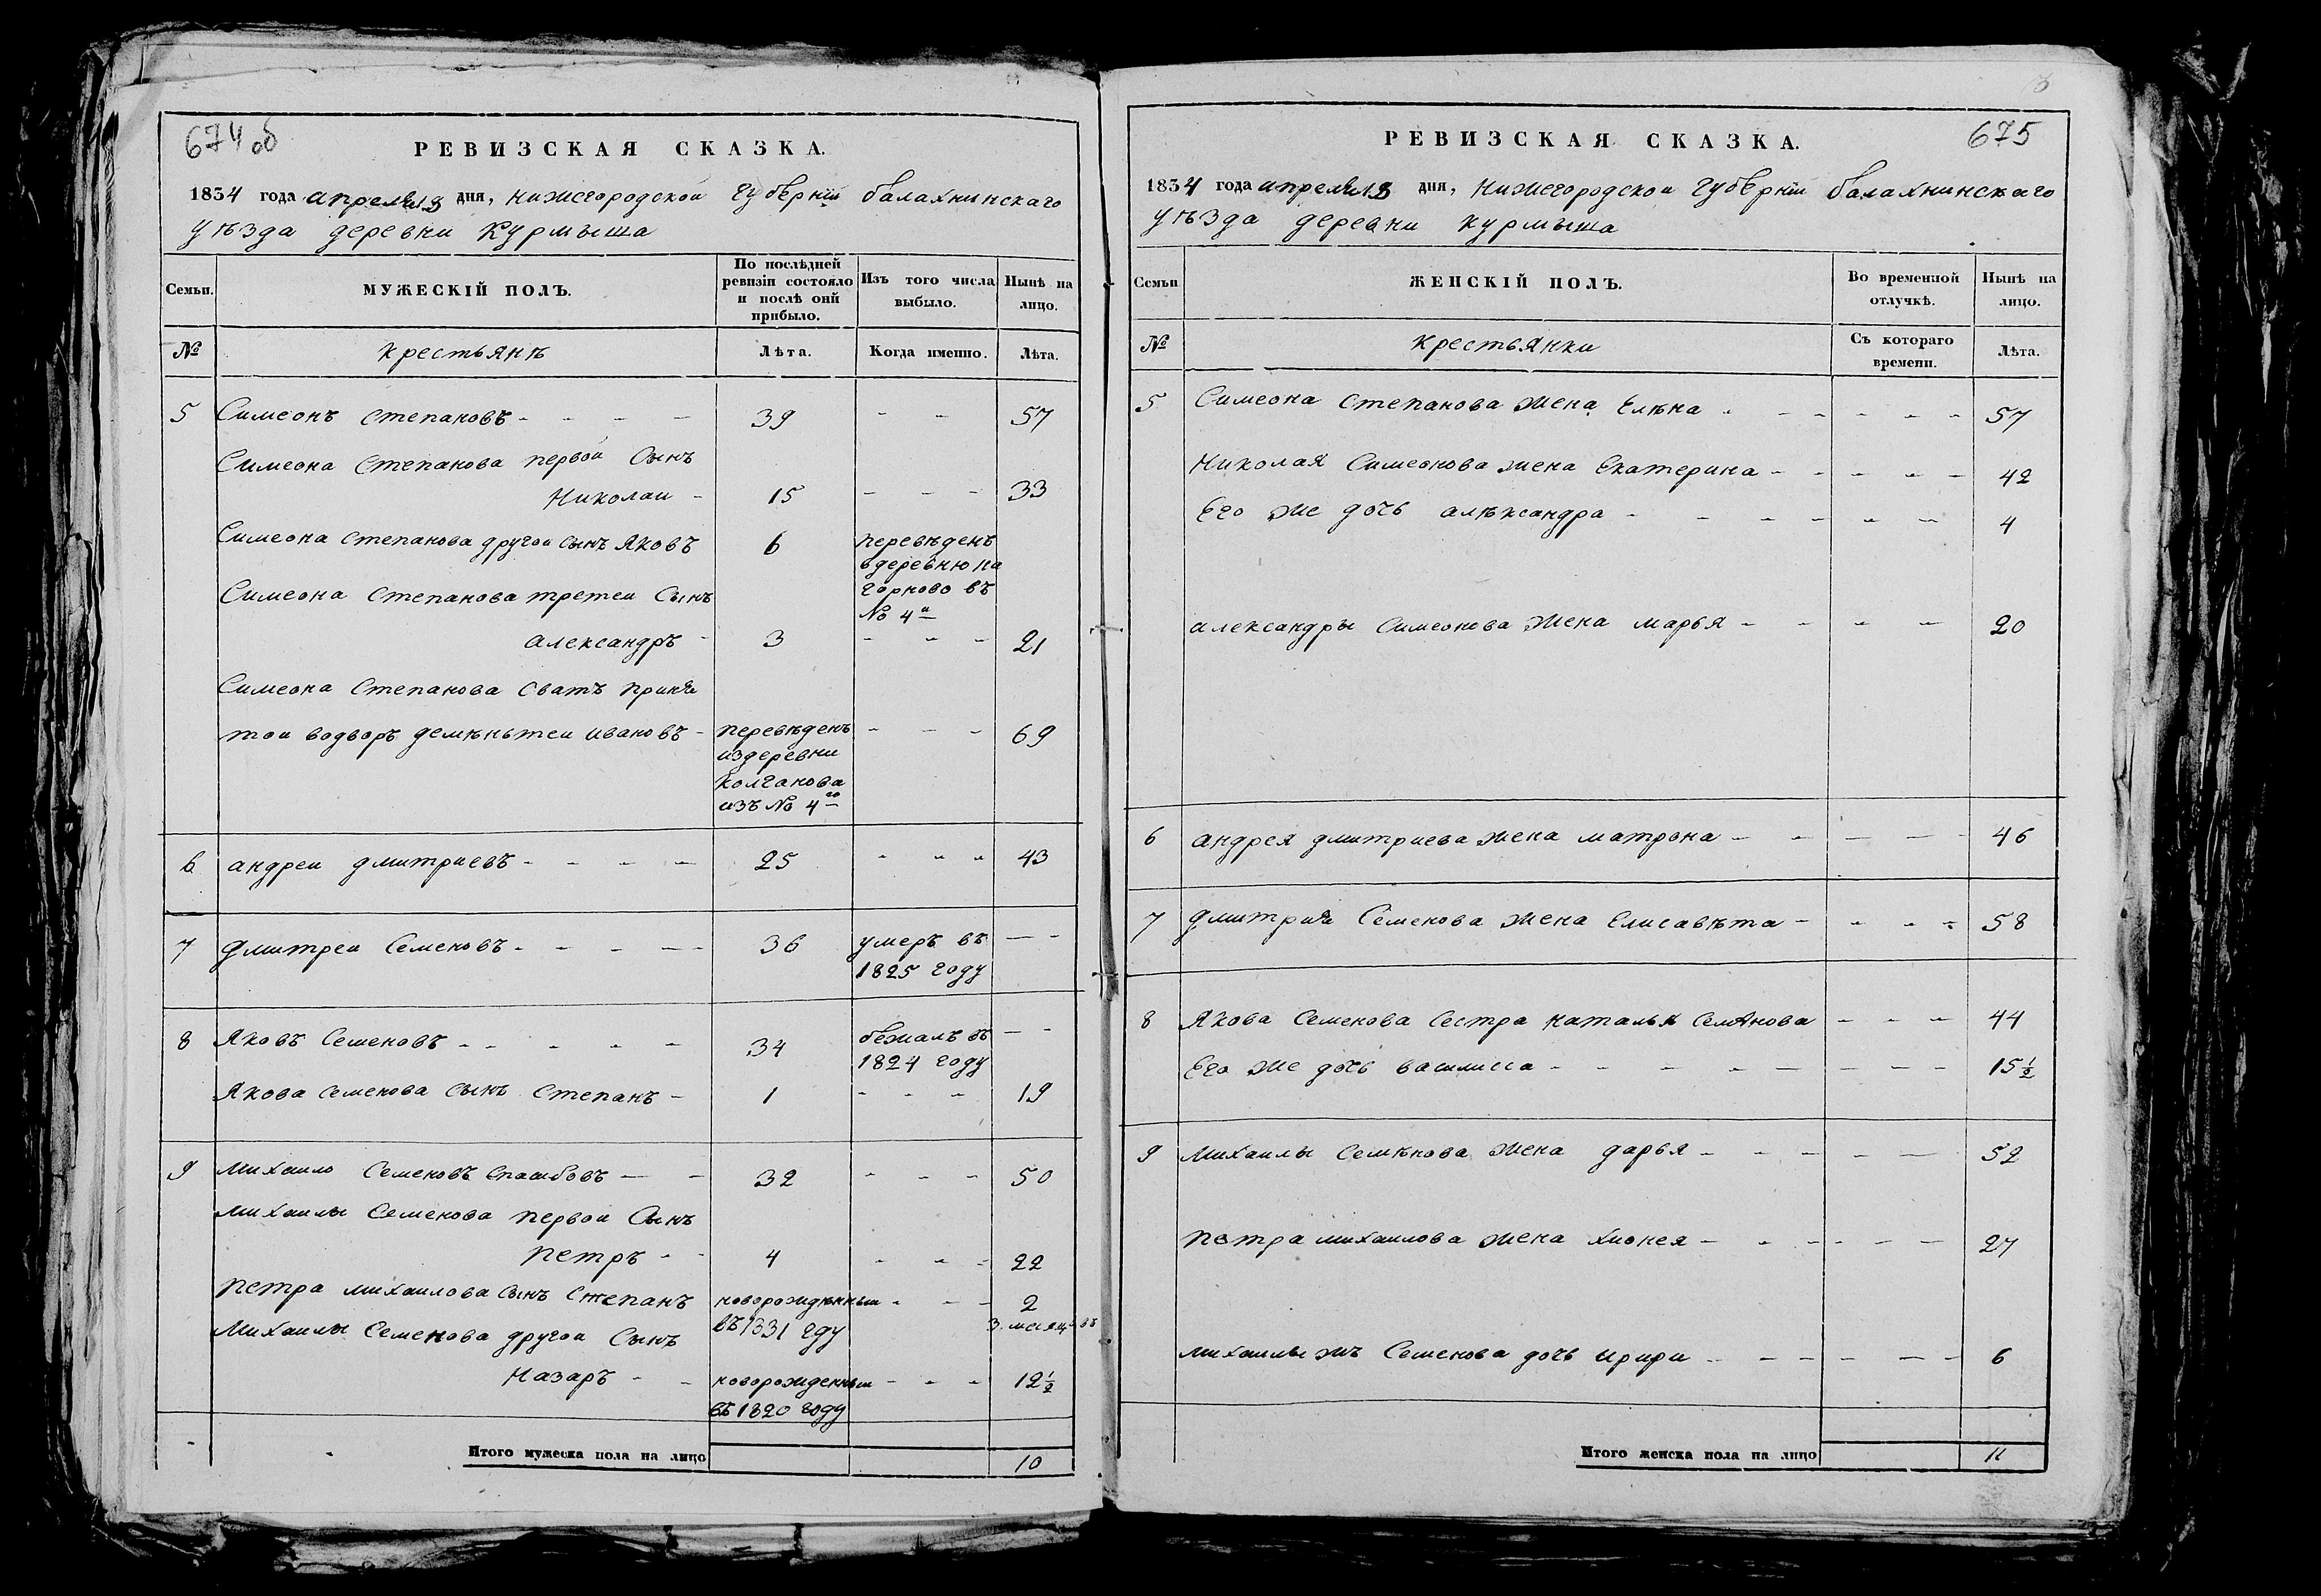 674 об
РЕВИЗСКАЯ СКАЗКА.
1834 года апреля 13 дня, нижегородской губѣрнїи балахнинскаго
уѣзда деревни Курмыша
Семьи.
МУЖЕСКІЙ ПОЛЪ.
По послѣдней ревизіи состояло и послѣ оній прибыло.
Изъ того числа выбыло.
Нынѣ на лицо.
№
крестьянѣ
Лѣта.
Когда именно.
Лѣта.
5 Симеонъ Степановъ - - - - 39 - - 57
Симеона Степанова первои Сынъ
Николаи - 15 - - - 33
Симеона Степанова другои сынъ Яковъ 6 перевѣденъ
вдеревню на
Симеона Степанова третеи Сынъ горново въ
№ 4й
александръ - 3 - - - 21
Симеона Степанова Сватъ приня
тои водворъ демѣньтеи ивановъ - перевѣденъ - - - 69
издеревни
Колганова
изъ № 4го
6 андреи дмитриевъ - - - - 25 - - - 43
7 Дмитреи Семеновъ - - - - - 36 умеръ въ - -
1825 году
8 Яковъ Семеновъ - - - - - 34 бежалъ въ - -
1824 году
Якова Семенова сынъ Степанъ - 1 - - - 19
9 Михаило Семеновъ - - 32 - - - 50
Михаилы Семенова первои Сынъ
Петръ - - 4 - - - 22
Петра михаилова сынъ Степанъ новорождѣнныи - - - 2
Михаилы Семенова другои Сынъ въ 1831 гду 3. месяцовъ
Назаръ - - новорожденныи - - - 12½
въ 1820 году
Итого мужеска пола на лицо 10
675
РЕВИЗСКАЯ СКАЗКА.
1834 года апреля 13 дня, Нижегородскои губѣрнїи балахнинскаго
уѣзда деревни курмыша
Семьи
ЖЕНСКІЙ ПОЛЪ.
Во временной отлучкѣ.
Нынѣ на лицо.
№
крестьянки
Съ котораго времени.
Лѣта.
5 Симеона Степанова жена Елѣна - - - - - - 57
Николая Симеонова жена Екатерина - - - - - 42
Его же дочь алѣксандра - - - - - - 4
александры Симеонова жена марья - - - - 20
6 андрея дмитриева жена матрона - - - - - 46
7 дмитрия Семенова жена Елисавѣта - - - - 58
8 Якова Семенова Сестра наталья Семянова - - - 44
Его же дочь василисса - - - - - - - - 15½
9 Михаилы Семѣнова жена дарья - - - - - 52
Петра михаилова жена хионея - - - - - - 27
михаилы жъ Семенова дочь ирири - - - - - - 6
Итого женска пола на лицо 11